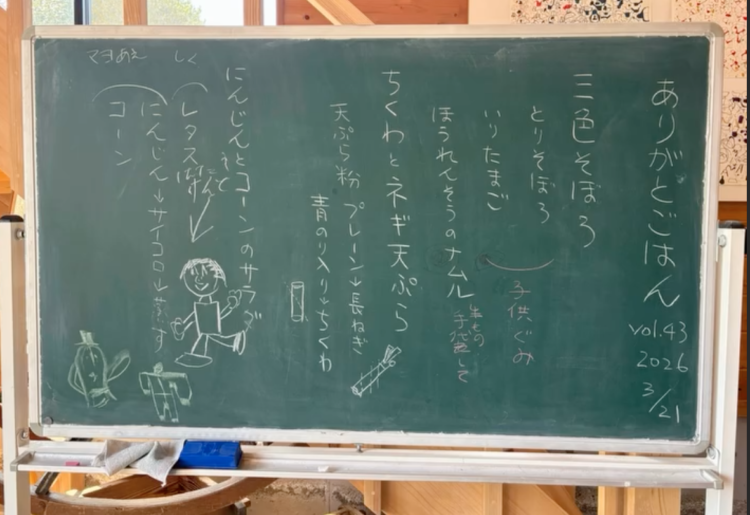 ありがとごはん
vol.43
2026
3/21
三色そぼろ
とりそぼろ
いりたまご
子供ぐみ
ほうれんそうのナムル
生もの
手袋して
ちくわとネギ天ぷら
天ぷら粉 プレーン→長ねぎ
青のり入り→ちくわ
にんじんとコーンのサラダ
レタス
しく
にんじん→サイコロ→蒸す
コーン
マヨあえ